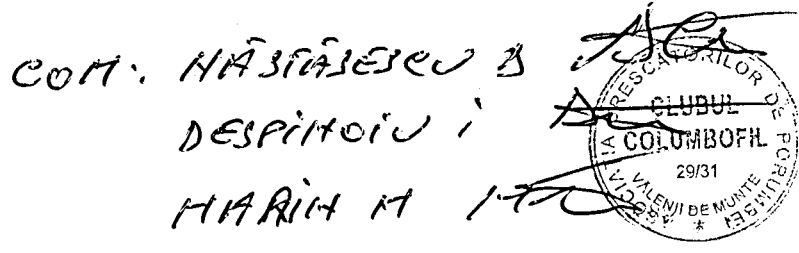 COM: NĂSTĂSESCU B
DESPINOIU I
MARIN M
ASOCIAȚIA CRESCĂTORILOR DE PORUMBEI
CLUBUL
COLUMBOFIL
29/31
VALENII DE MUNTE